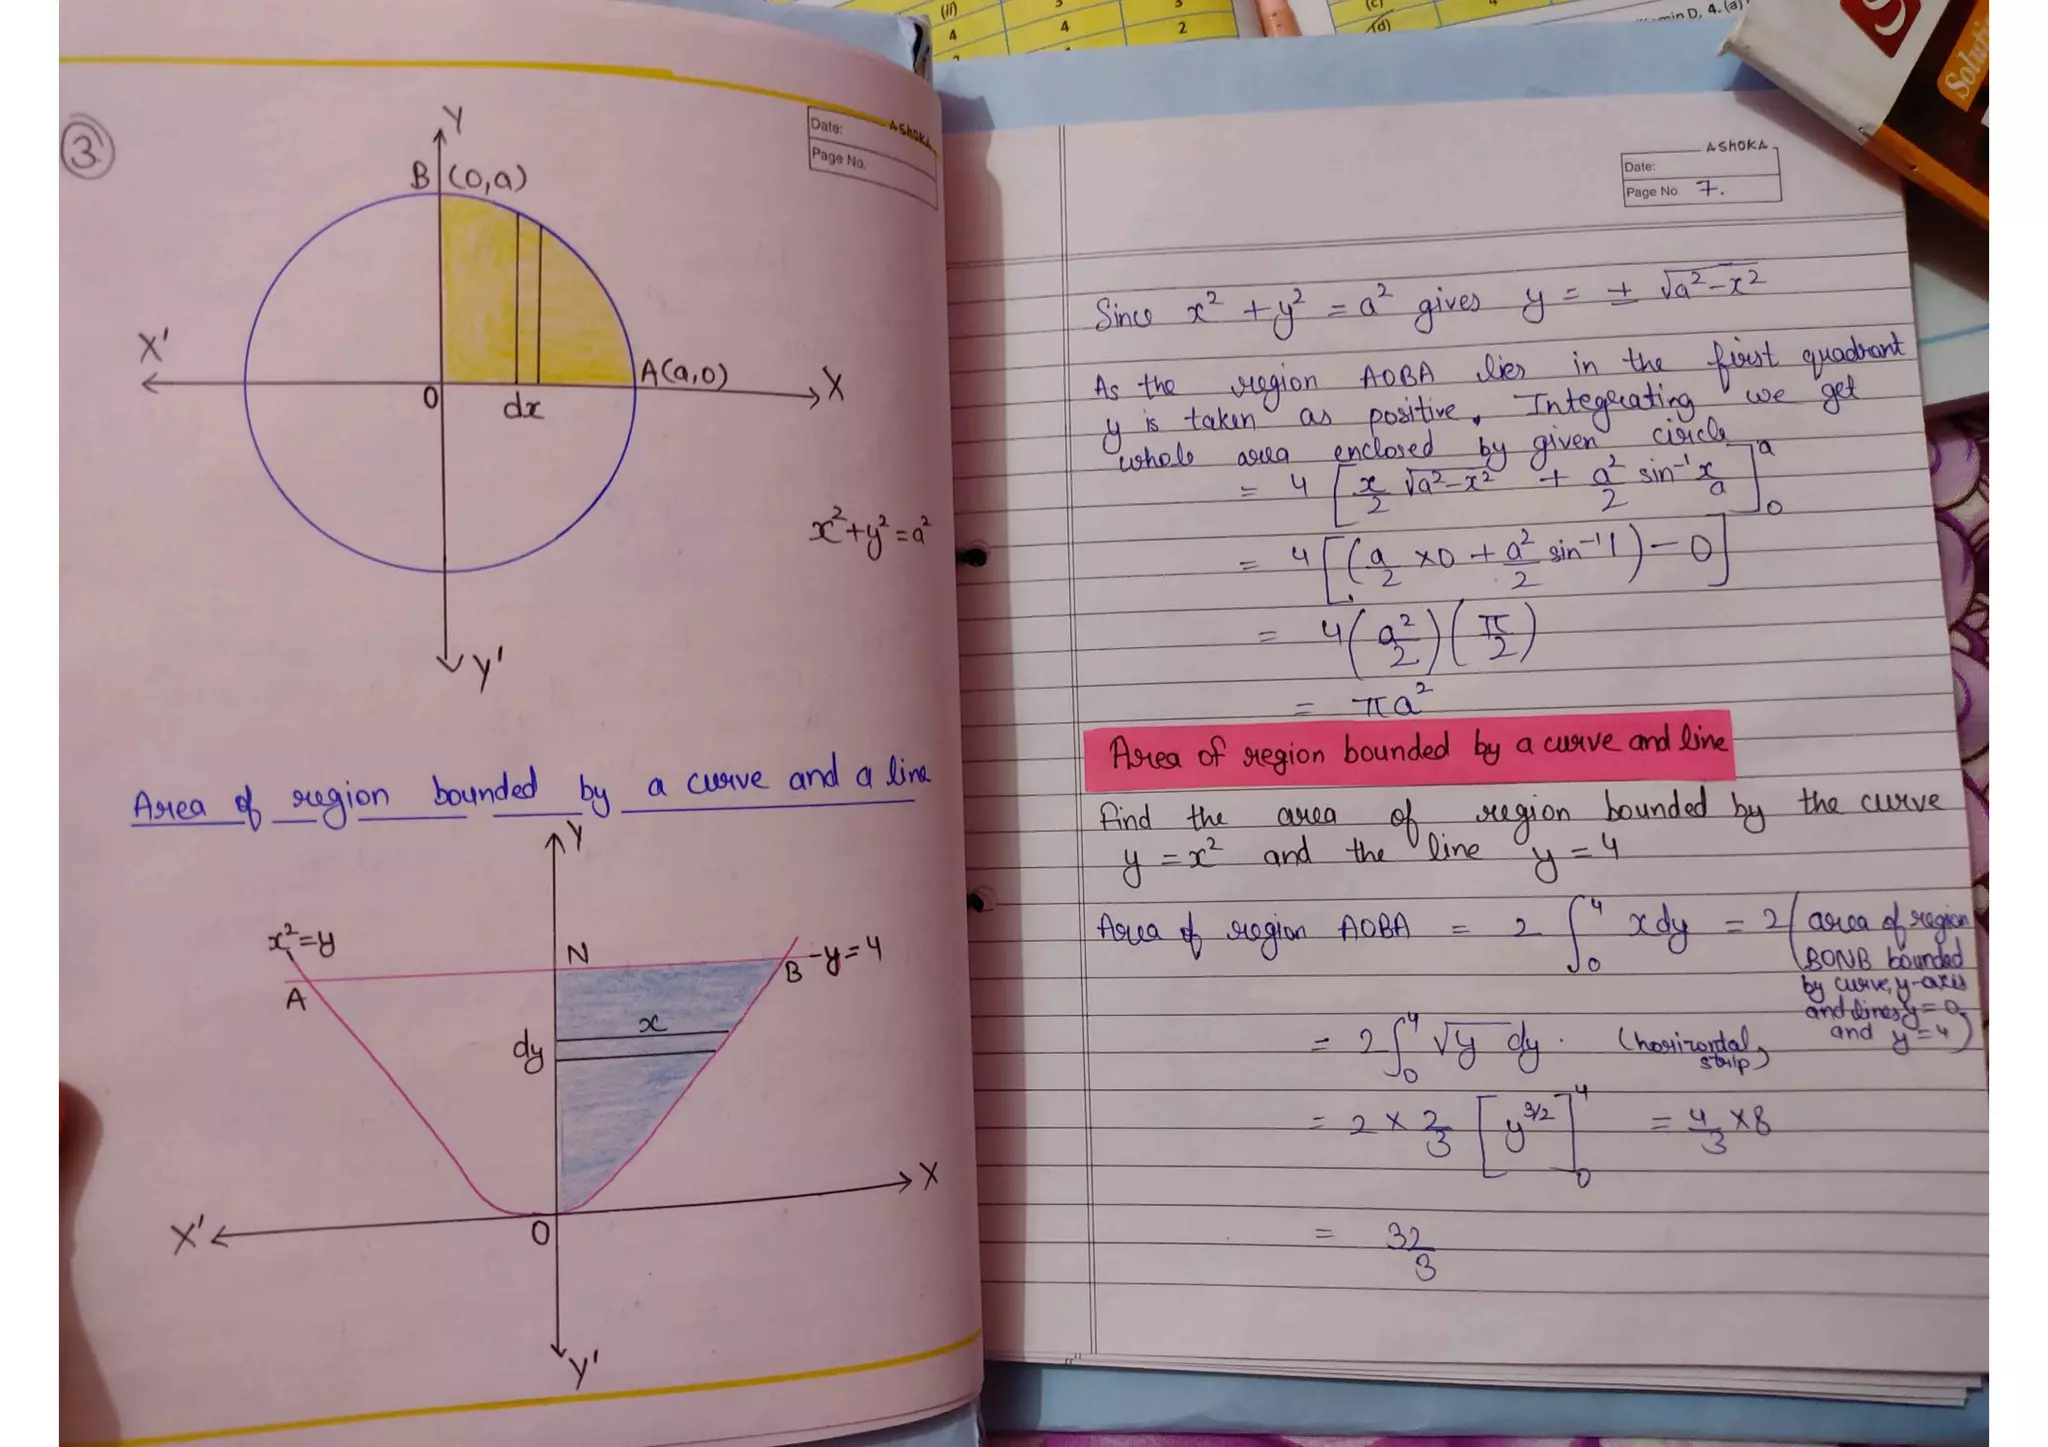 (ii) 3 3
4 4 2
(c) 4
(d)
min D, 4. (a)
Soluti
3
Date: ASHOKA
Page No.
Y
B (0,a)
X'
O
dx
A(a,0)
X
x²+y²=a²
Y'
Area of region bounded by a curve and a line
Y
x²=y
N
A
B
-y=4
x
dy
X
X'
O
Y'
ASHOKA
Date:
Page No. 7.
Since x² + y² = a² gives y = ± √a²-x²
As the region AOBA lies in the first quadrant
y is taken as positive. Integrating we get
whole area enclosed by given circle
= 4 [x/2 √a²-x² + a²/2 sin⁻¹ x/a]₀ᵃ
= 4[(a/2 ×0 + a²/2 sin⁻¹1) - 0]
= 4(a²/2)(π/2)
= πa²
Area of region bounded by a curve and line
Find the area of region bounded by the curve
y = x² and the line y = 4
Area of region AOBA = 2 ∫₀⁴ xdy = 2(area of region
BONB bounded
by curve, y-axis
and lines y=0
and y=4)
= 2∫₀⁴ √y dy. (horizontal
strip)
= 2 × 2/3 [y^3/2]₀⁴ = 4/3 ×8
= 32/3